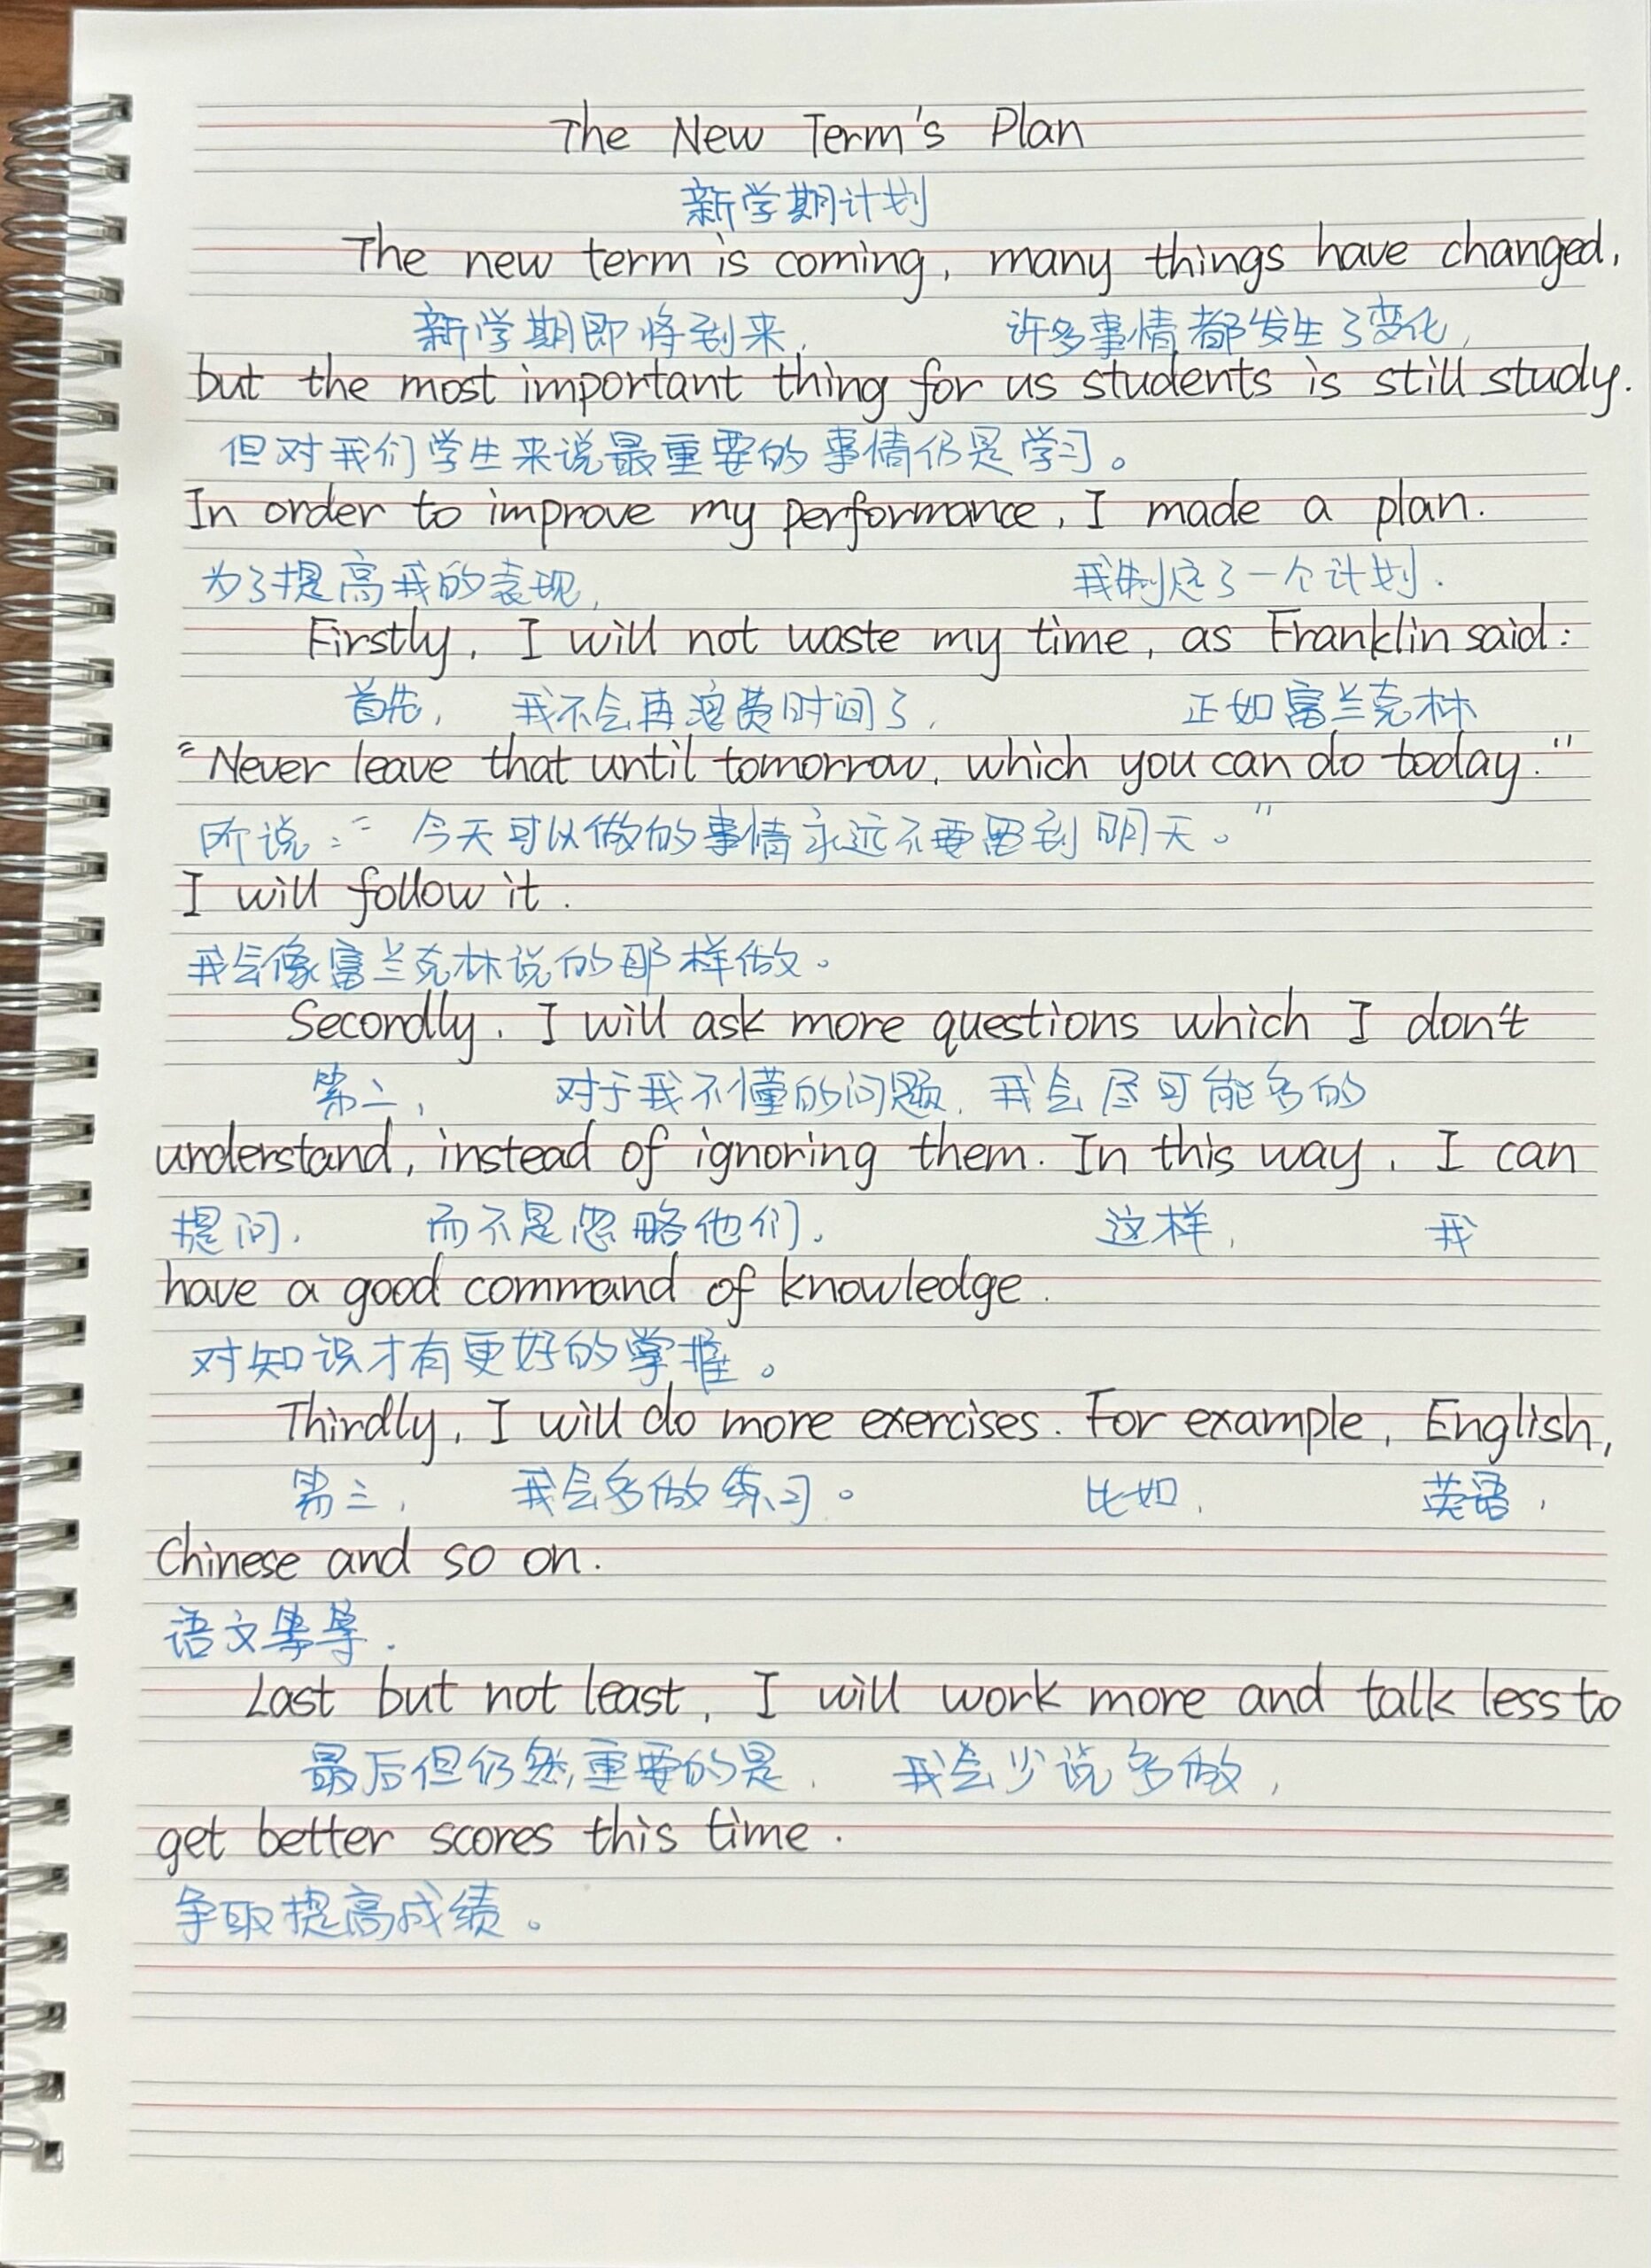 The New Term's Plan
新学期计划
The new term is coming, many things have changed,
新学期即将到来, 许多事情都发生了变化,
but the most important thing for us students is still study.
但对我们学生来说最重要的事情仍是学习。
In order to improve my performance, I made a plan.
为了提高我的表现, 我制定了一个计划.
Firstly, I will not waste my time, as Franklin said:
首先, 我不会再浪费时间了, 正如富兰克林
"Never leave that until tomorrow, which you can do today."
所说:"今天可以做的事情永远不要留到明天。"
I will follow it.
我会像富兰克林说的那样做。
Secondly, I will ask more questions which I don't
第二, 对于我不懂的问题, 我会尽可能多的
understand, instead of ignoring them. In this way, I can
提问, 而不是忽略他们. 这样, 我
have a good command of knowledge.
对知识才有更好的掌握。
Thirdly, I will do more exercises. For example, English,
第三, 我会多做练习。 比如, 英语,
Chinese and so on.
语文等等.
Last but not least, I will work more and talk less to
最后但仍然重要的是, 我会少说多做,
get better scores this time.
争取提高成绩。